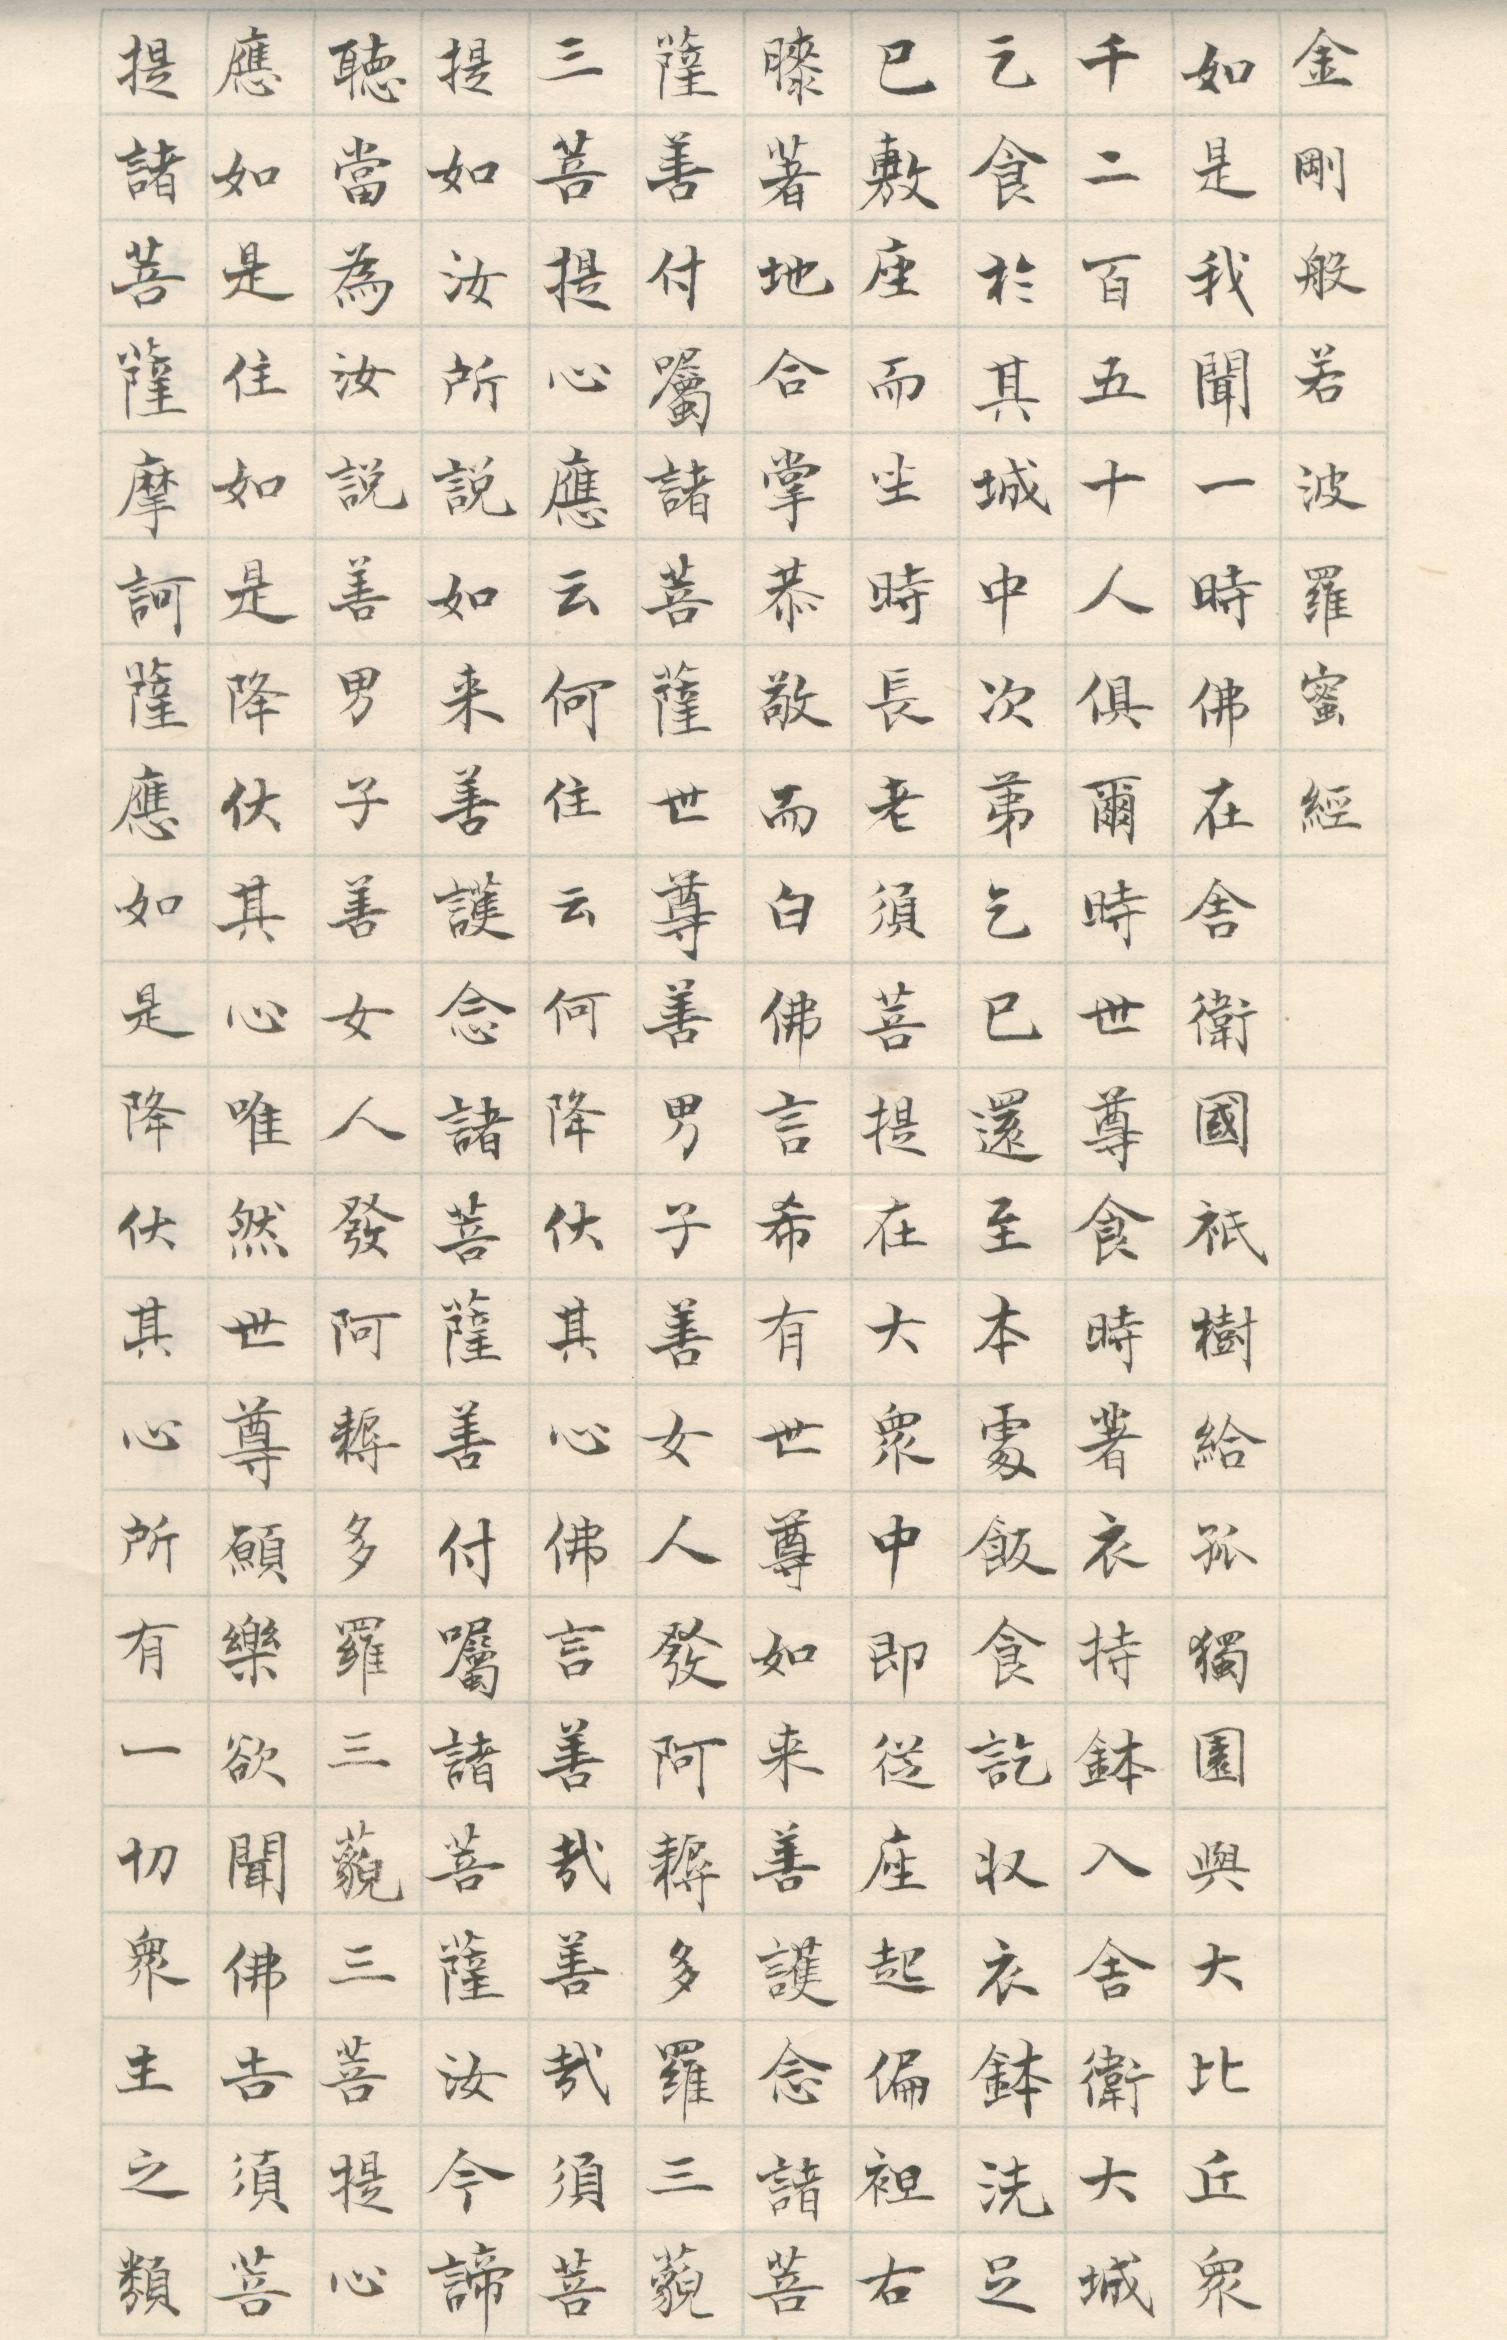 金剛般若波羅蜜經
如是我聞一時佛在舍衛國祇樹給孤獨園與大比丘衆
千二百五十人俱爾時世尊食時著衣持鉢入舍衛大城
乞食於其城中次苐乞已還至本處飯食訖収衣鉢洗足
已敷座而坐時長老須菩提在大衆中即從座起偏袒右
膝著地合掌恭敬而白佛言希有世尊如来善護念諸菩
薩善付囑諸菩薩世尊善男子善女人發阿耨多羅三藐
三菩提心應云何住云何降伏其心佛言善哉善哉須菩
提如汝所説如来善護念諸菩薩善付囑諸菩薩汝今諦
聽當為汝説善男子善女人發阿耨多羅三藐三菩提心
應如是住如是降伏其心唯然世尊願樂欲聞佛告須菩
提諸菩薩摩訶薩應如是降伏其心所有一切衆主之類